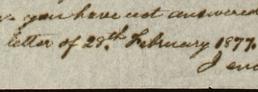 you have not answered
letter of 28th February 1877.
I en